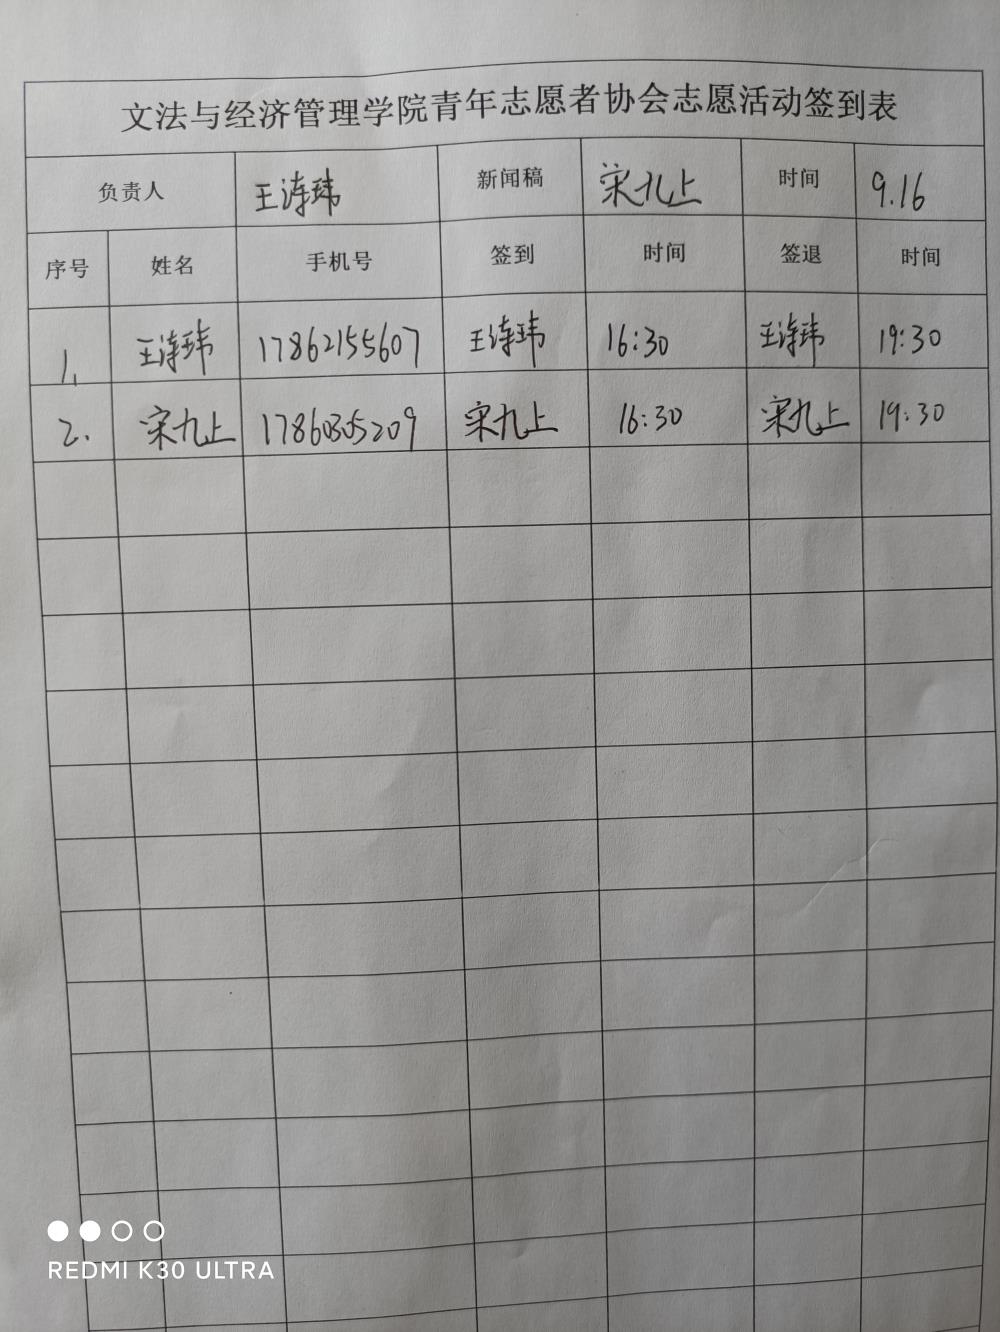 文法与经济管理学院青年志愿者协会志愿活动签到表
负责人 王涛玮 新闻稿 宋九上 时间 9.16
序号 姓名 手机号 签到 时间 签退 时间
1. 王涛玮 17862155607 王涛玮 16:30 王涛玮 19:30
2. 宋九上 17860305209 宋九上 16:30 宋九上 19:30
REDMI K30 ULTRA